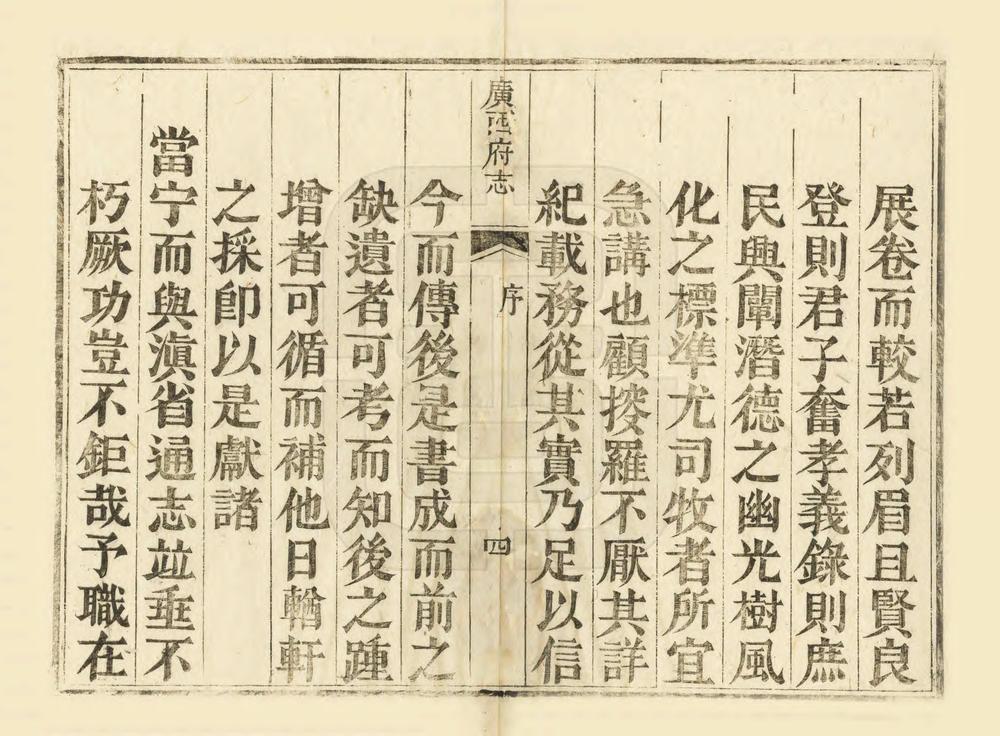 展卷而較若列眉且賢良
登則君子奮孝義錄則庶
民興闡潛德之幽光樹風
化之標準尤司牧者所宜
急講也顧搜羅不厭其詳
紀載務從其實乃足以信
廣西府志
序
四
今而傳後是書成而前之
缺遺者可考而知後之踵
增者可循而補他日輶軒
之採卽以是獻諸
當宁而與滇省通志竝垂不
朽厥功豈不鉅哉予職在